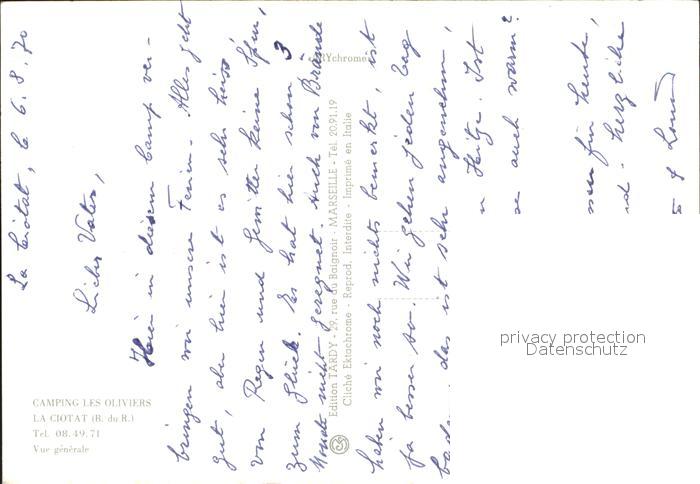 La Ciotat, le 6.8.70
Lieber Vater,
Hier in diesem Camp ver-
bringen wir unsere Ferien. Alles geht
gut, aber hier ist es sehr heiss
von Regen und Gewitter keine Spur,
zum Glück. Es hat hier schon 3
Monate nicht geregnet. Auch von Brände
haben wir noch nichts bemerkt, ist
ja besser so. Wir gehen jeden Tag
bade das ist sehr angenehm,
Hitze. Ist
auch warm?
für heute,
herzliche
CAMPING LES OLIVIERS
LA CIOTAT (B. du R.)
Tel. 08.49.71
Vue générale
Edition TARDY - 29, rue du Baignoir - MARSEILLE - Tel. 20.91.19
Cliché Ektochrome - Reprod. Interdite - Imprimé en Italie
privacy protection
Datenschutz